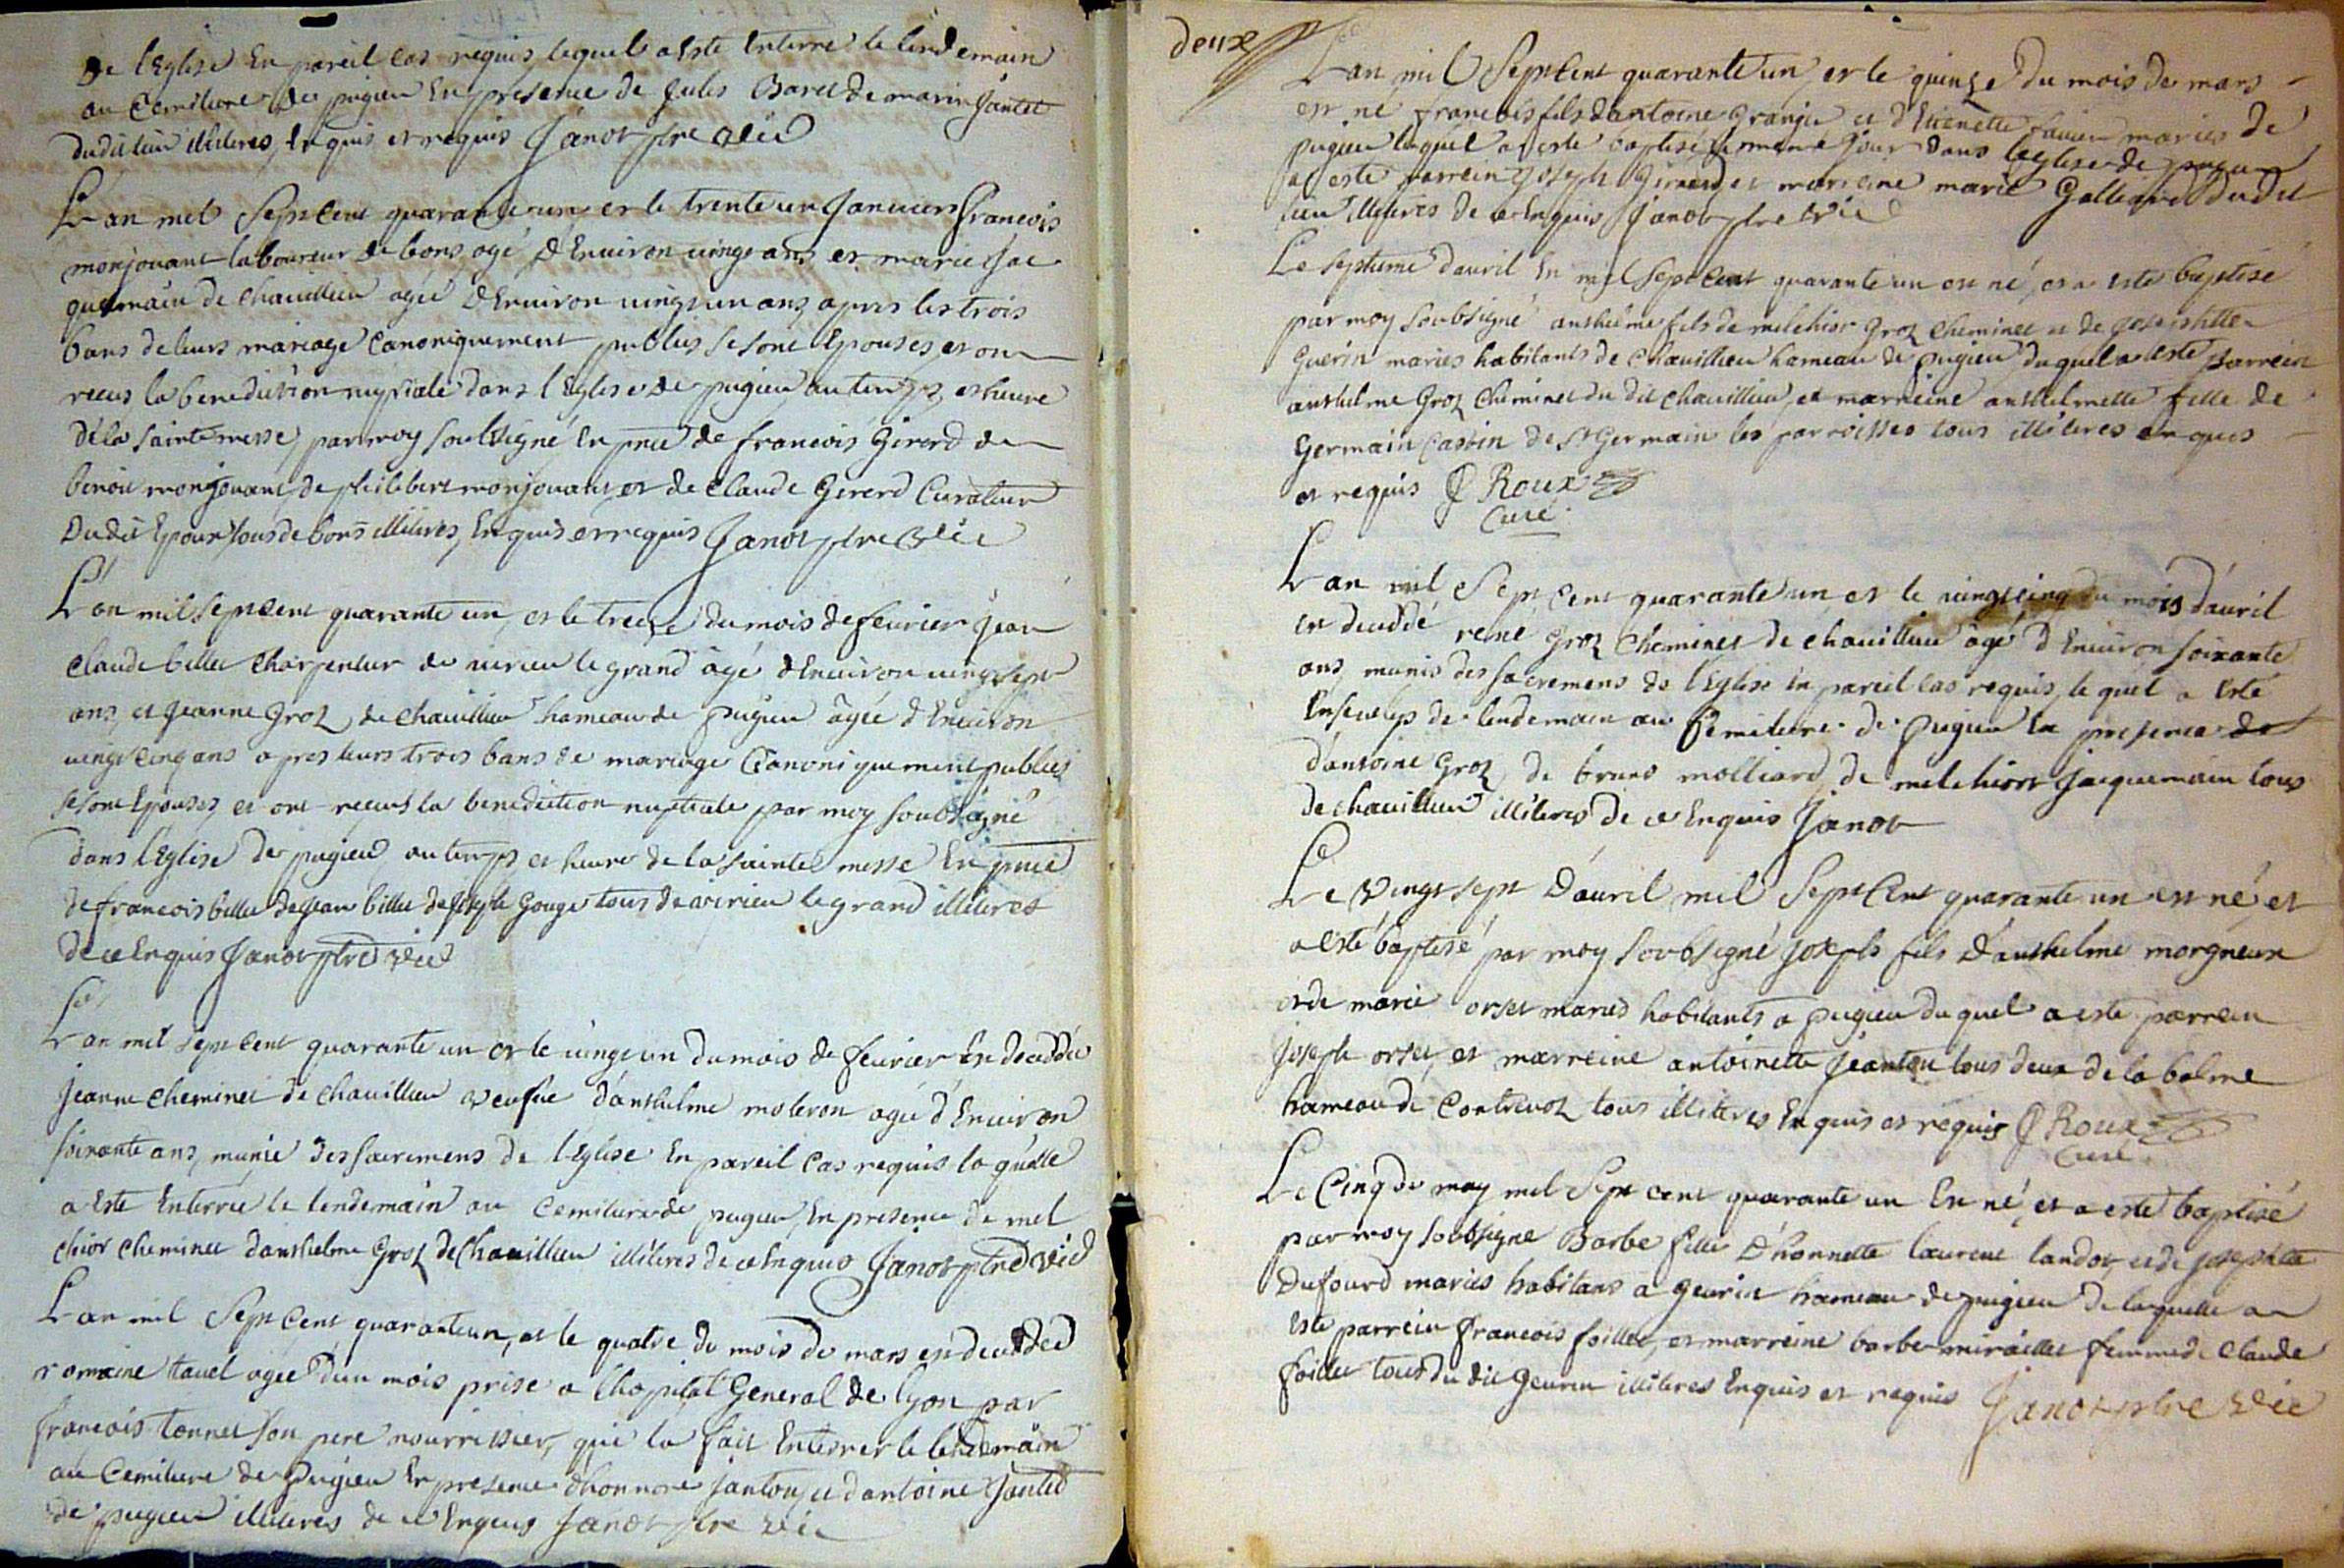 De l'Eglise En pareil cas requis lequel a Este Enterre le lendemain
au Cemitiere de pugieu En presence de Jules Baret de marin Jantet
dudit lieu illiteres, Enquis et requis Janot ptre vic
L'an mil Sept Cent quarante un et le trente un Januier francois
monjouant laboureur de bons agé d'Enuiron uingt ans et marie Jac
quemain de chauillieu agée d'Enuiron uingt un ans apres les trois
bans de leurs mariage Canoniquement publies se sont Epouses, et ont
recus la benediction nuptiale dans l'Eglise de pugieu au temps, et heure
de la sainte messe, par moy soubsigné En pnce de francois Girerd de
benoit monjouant, de philibert monjouant, et de Claude Girerd Curateur
Dudit Epoux tous de bons illiteres, Enquis et requis Janot ptre vic
L'an mil sept cent quarante un, et le treize du mois de feurier Jean
Claude billet Charpentier de uirieu le grand âgé d'Enuiron uingt sept
ans, et Jeanne Groz de chauillieu hameau de pugieu âgée d'Enuiron
uingt cinq ans apres leurs trois bans de mariage Canoniquement publies
se sont Epouses et ont recus la benediction nuptiale par moy soubsigné
dans l'Eglise de pugieu au temps et heure de la sainte messe En pnce
de francois billet de Jean billet de Joseph Gouge tous de uirieu le grand illiteres
de ce Enquis Janot ptre vic
L'an mil sept cent quarante un et le uingt un du mois de feurier En decedée
Jeanne cheminet de chauillieu veufue d'anthelme moleron agée d'Enuiron
soixante ans, munie des sacremens de l'Eglise En pareil Cas requis laquelle
a Este Enterrée le lendemain au Cemitiere de pugieu En presence de mel
chior Cheminet d'anthelme Groz de Chauillieu illiteres de ce Enquis Janot ptre vic
L'an mil Sept Cent quarante un, et le quatre du mois de mars en decedée
romaine tauel agée d'un mois prise a l'hopital General de lyon par
francois tonnet son pere nourrissier, qui la fait Enterrer le lendemain
au Cemitiere de Pugieu En presence d'honnore Janton, et d'antoine Jantet
de pugieu illiteres de ce Enquis Janot ptre vic
deux
L'an mil Sept Cent quarante un, et le quinze du mois de mars
est né francois fils d'antoine Grangie et d'Etienette mariés de
pugieu lequel a este baptisé le meme jour dans l'eglise de pugieu
a este parrein Joseph Girerd et marreine marie Gallear dudit
lieu illiteres de ce Enquis Janot ptre vic
Le septieme d'auril En mil Sept Cent quarante un est né, et a este baptisé
par moy soubsigné anthelme fils de melchior Groz Cheminet et de Josephtte
Guerin mariés habitants de Chauillieu hameau de pugieu duquel a este parrein
anthelme Groz Cheminet du dit chauillieu, et marreine anthelmette fille de
Germain Cassin de St Germain les parroisses tous illiteres enquis
et requis J Roux
Curé
L'an mil Sept Cent quarante un et le uingt cinq du mois d'auril
En decedé rené Groz Cheminet de chauillieu âgé d'Enuiron soixante
ans, munis des sacremens de l'Eglise En pareil Cas requis, le quel a Esté
Enseuely de lendemain au Cemitiere de pugieu En presence de
d'antoine Groz, de bruno molliard, de melchior Jacquemain tous
de chauillieu illiteres de ce Enquis Janot
Le vingt sept D'auril mil Sept Cent quarante un est né, et
a esté baptisé par moy soubsigné Joseph fils d'anthelme morgneux
et de marie orset mariés habitants a pugieu du quel a este parrein
Joseph orset, et marreine antoinette Jeanton tous deux de la balme
hameau de Contreuoz tous illiteres Enquis et requis J Roux
Curé
Le Cinq de may mil Sept cent quarante un En né, et a esté baptisé
par moy soubsigne Barbe fille d'honnette laurent landot, et de Josephtte
Dufourd mariés habitans a Geurin hameau de pugieu de laquelle a
este parrein francois foillet, et marreine barbe miraillet femme de Claude
foillet tous du dit Geurin illiteres Enquis et requis Janot ptre vic